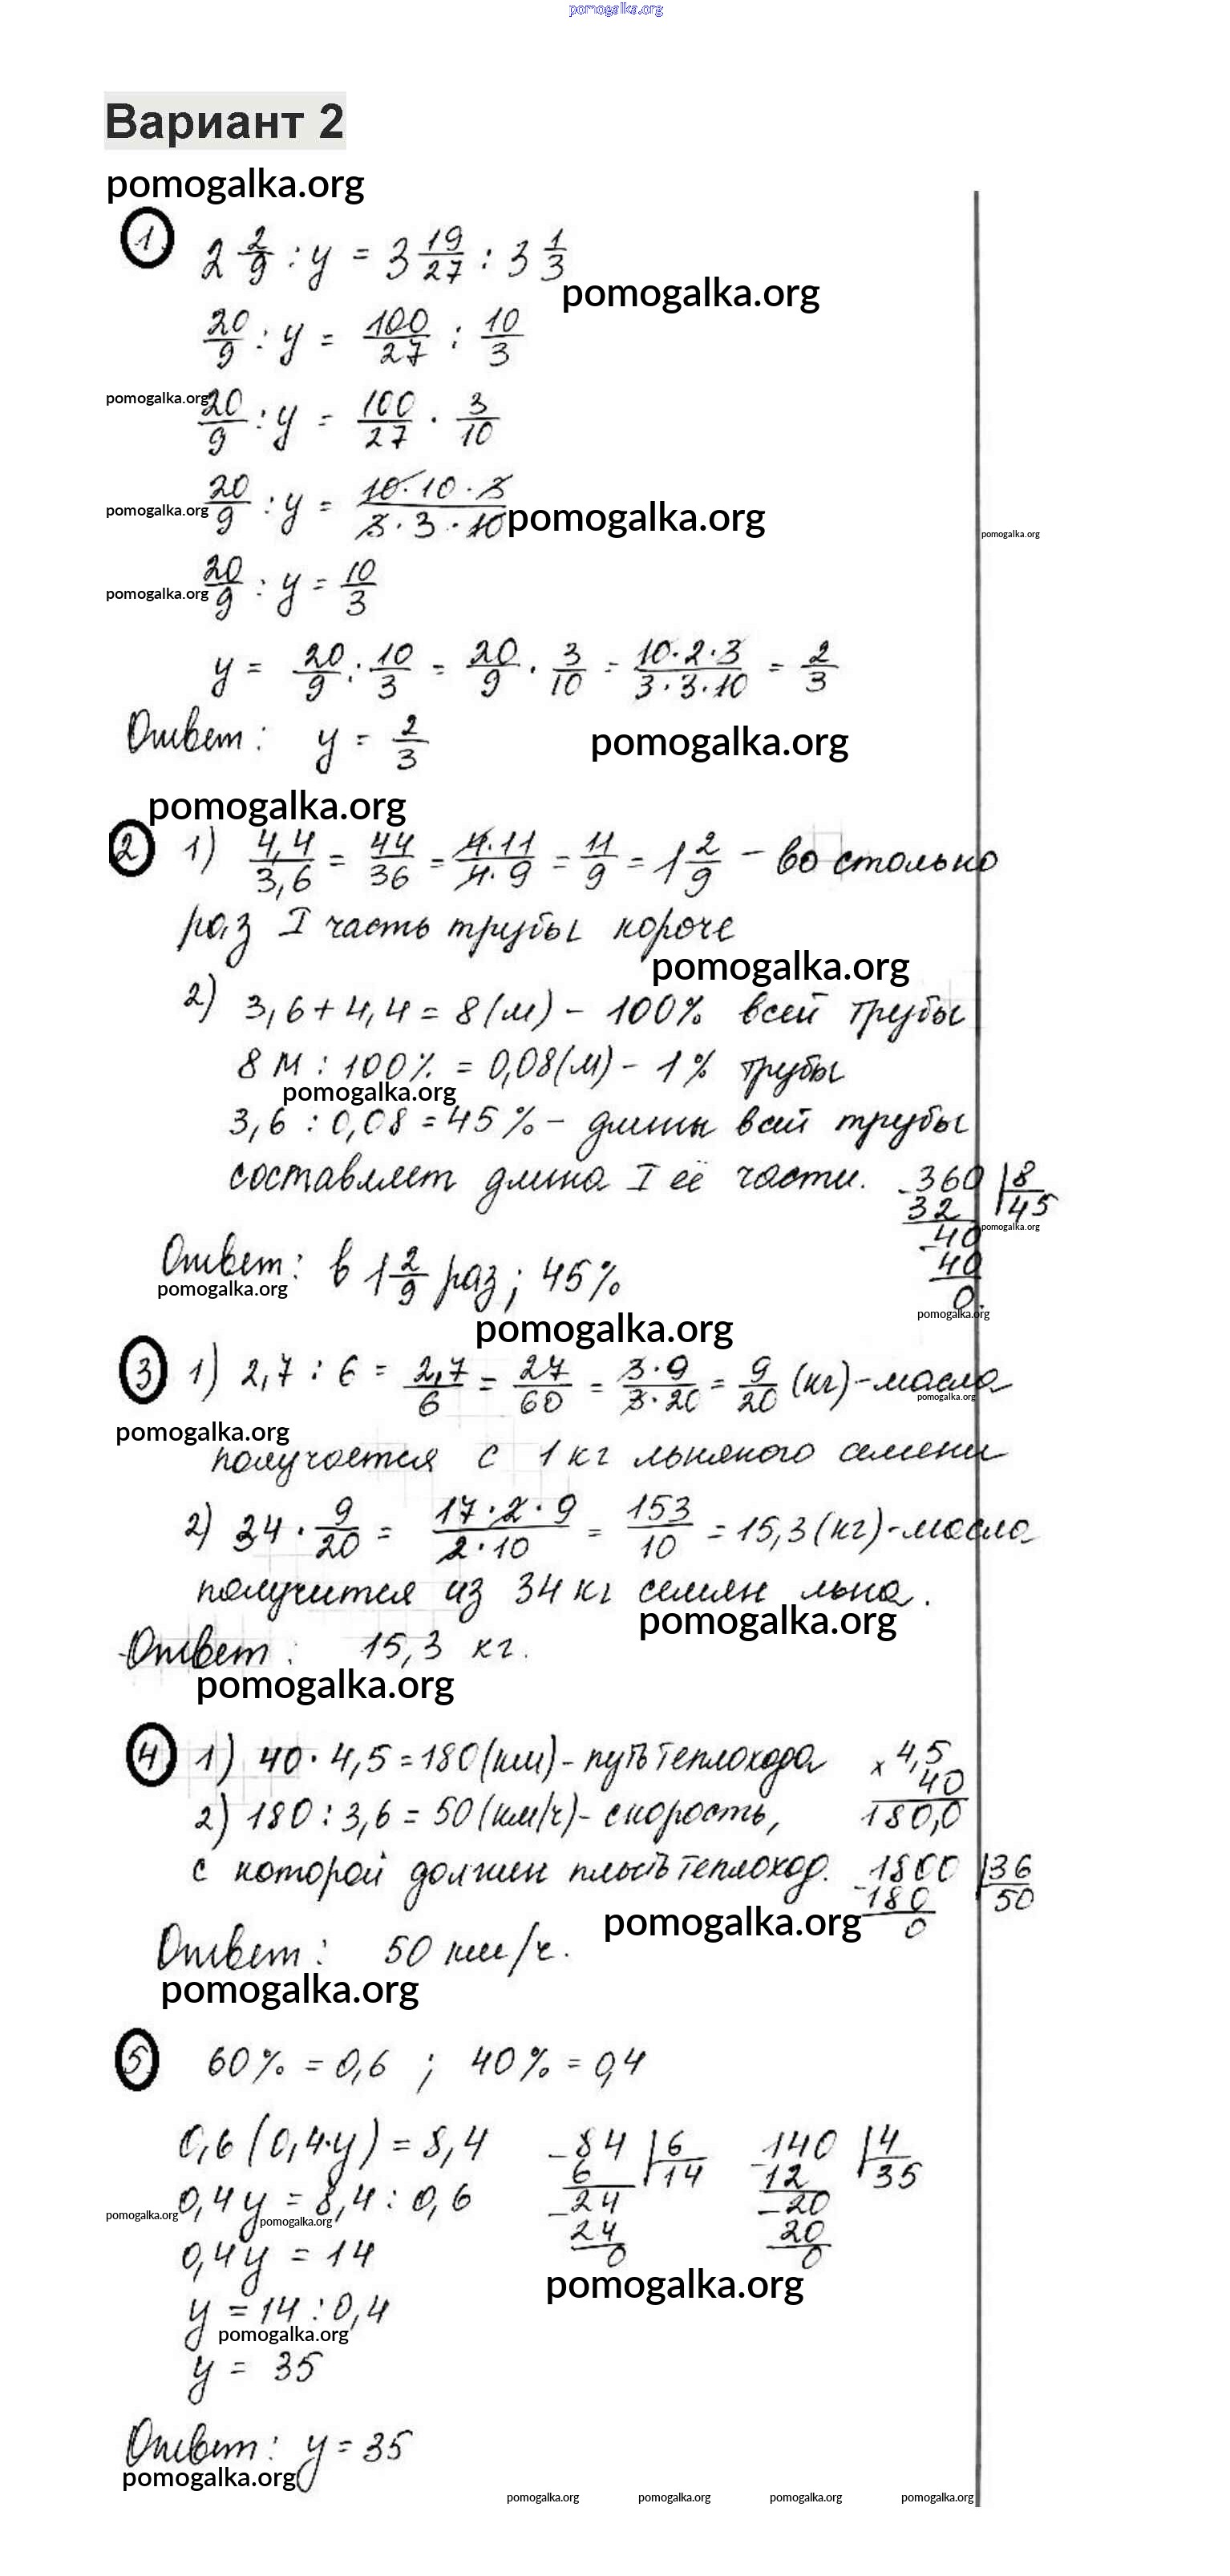 pomogalka.org
Вариант 2
pomogalka.org
1 2 2/9 : y = 3 19/27 : 3 1/3
pomogalka.org
20/9 : y = 100/27 : 10/3
pomogalka.org 20/9 : y = 100/27 · 3/10
pomogalka.org 20/9 : y = 10·10·3/3·3·10 pomogalka.org
pomogalka.org
pomogalka.org 20/9 : y = 10/3
y = 20/9 : 10/3 = 20/9 · 3/10 = 10·2·3/3·3·10 = 2/3
Ответ: y = 2/3
pomogalka.org
pomogalka.org
2 1) 4,4/3,6 = 44/36 = 4·11/4·9 = 11/9 = 1 2/9 – во столько
раз I часть трубы короче
pomogalka.org
2) 3,6 + 4,4 = 8 (м) – 100% всей трубы
8 м : 100% = 0,08 (м) – 1% трубы
pomogalka.org
3,6 : 0,08 = 45% – длины всей трубы
составляет длина I её части.
-360 |8
32 45
pomogalka.org
-40
40
0.
Ответ: в 1 2/9 раз; 45%
pomogalka.org
pomogalka.org
pomogalka.org
3 1) 2,7 : 6 = 2,7/6 = 27/60 = 3·9/3·20 = 9/20 (кг) – масла
pomogalka.org
pomogalka.org
получается с 1 кг льняного семени
2) 34 · 9/20 = 17·2·9/2·10 = 153/10 = 15,3 (кг) - масла
получится из 34 кг семян льна.
pomogalka.org
Ответ: 15,3 кг.
pomogalka.org
4 1) 40 · 4,5 = 180 (км) – путь теплохода
x 4,5
40
180,0
2) 180 : 3,6 = 50 (км/ч) – скорость,
с которой должен плыть теплоход.
-1800 |36
180 50
0
pomogalka.org
Ответ: 50 км/ч.
pomogalka.org
5 60% = 0,6 ; 40% = 0,4
0,6 (0,4·y) = 8,4
-84 |6
6 14
-24
24
0
-140 |4
12 35
-20
20
0
0,4y = 8,4 : 0,6
pomogalka.org
pomogalka.org
0,4y = 14
pomogalka.org
y = 14 : 0,4
pomogalka.org
y = 35
Ответ: y = 35
pomogalka.org
pomogalka.org pomogalka.org pomogalka.org pomogalka.org